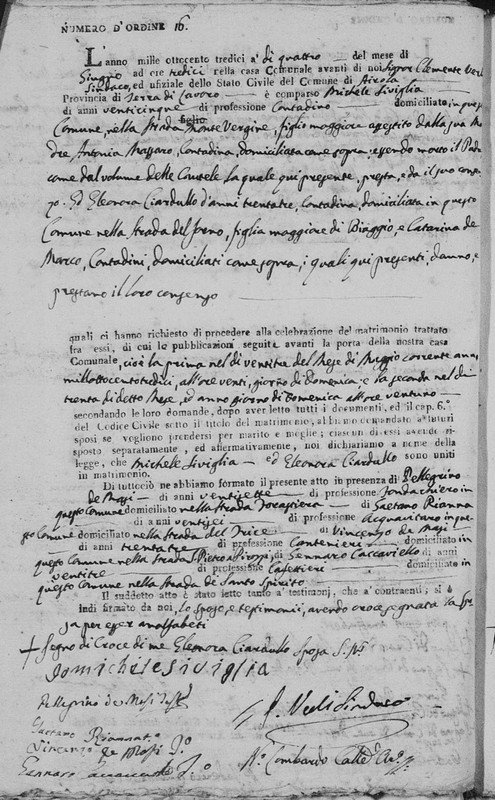 NUMERO D'ORDINE 16.
L'anno mille ottocento tredici a' dì quattro del mese di
Giugno ad ore tredici nella casa Comunale avanti di noi Signor Clemente Veli
Sindaco, ed ufiziale dello Stato Civile del Comune di Airola
Provincia di Terra di Lavoro è comparso Michele Siviglia
di anni venticinque di professione Contadino domiciliato in questo
Comune, nella strada Monte Vergine, figlio maggiore assistito dalla sua Ma
dre Antonia Massaro, Contadina, domiciliata come sopra, essendo morto il Padre
come dal volume delle Cautele la quale qui presente, presta, e dà il suo consen
zo. Ed Eleonora Ciardullo d'anni trentatre, Contadina, domiciliata in questo
Comune nella strada del Freno, figlia maggiore di Biaggio, e Catarina de
Marco, Contadini, domiciliati come sopra; i quali qui presenti, danno, e
prestano il loro consenzo
quali ci hanno richiesto di procedere alla celebrazione del matrimonio trattato
fra essi, di cui le pubblicazioni seguite avanti la porta della nostra casa
Comunale, cioè la prima nel dì ventitre del Mese di Maggio corrente anno
millottocentotredici, all'ore venti, giorno di Domenica; e la seconda nel dì
trenta di detto Mese, ed anno giorno di Domenica all'ore ventuno
secondando le loro domande, dopo aver letto tutti i documenti, ed il cap. 6.°
del Codice Civile sotto il titolo del matrimonio, abbiamo domandato a' futuri
sposi se vogliono prendersi per marito e moglie; ciascun di essi avendo ri-
sposto separatamente, ed affermativamente, noi dichiariamo a nome della
legge, che Michele Siviglia ed Eleonora Ciardullo sono uniti
in matrimonio.
Di tuttociò ne abbiamo formato il presente atto in presenza di Pellegrino
de Masi di anni ventisette di professione Fondachiero in
questo Comune domiciliato nella strada di Gaetano Rianna
di anni ventisei di professione Acquavitaro in que
sto Comune domiciliato nella strada del di Vincenzo de Masi
di anni trentatre di professione domiciliato in
questo Comune nella strada S. Pietro di Gennaro Caccaviello di anni
ventitre di professione Cafettieri domiciliato in
questo Comune nella strada di Santo Spirito
Il suddetto atto è stato letto tanto a' testimonj, che a' contraenti; si è
indi firmato da noi, lo Sposo, e testimonii, avendo crocesegnata la Spo
sa per esser analfabeti
+ Segno di Croce di me Eleonora Ciardullo Sposa
Io michele siviglia
Pellegrino de Masi
Gaetano Rianna
Vincenzo de Masi
Gennaro
Veli Sindaco
Lombardo